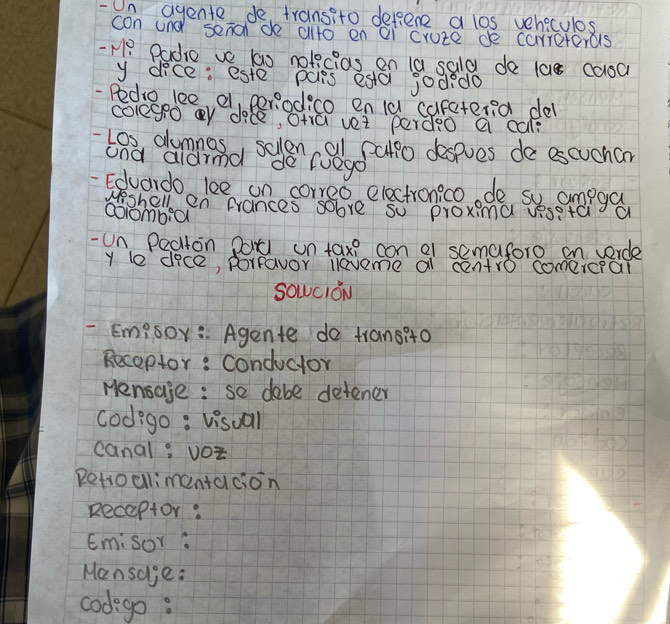 -Un agente de transito detiene a los vehiculos
con una señal de alto en el cruze de carreteras
-Mi Padre ve las noticias en la sala de la casa
y dice: este pais esta jodido
-Pedro lee el periodico en la cafeteria del
colegio y dice, otra vez perdio el cali
-Los alumnos salen al patio despues de escuchar
una alarma de fuego
-Eduardo lee un correo electronico de su amiga
Mishell en frances sobre su proxima visita a
colombia
-Un Peaton para un taxi con el semaforo en verde
y le dice, porfavor lleveme al centro comercial
SOLUCIÓN
- Emisor: Agente de transito
Receptor: conductor
Mensaje: se debe detener
codigo: visual
canal: voz
Retroalimentación
Receptor:
Emisor:
Mensaje:
codigo: